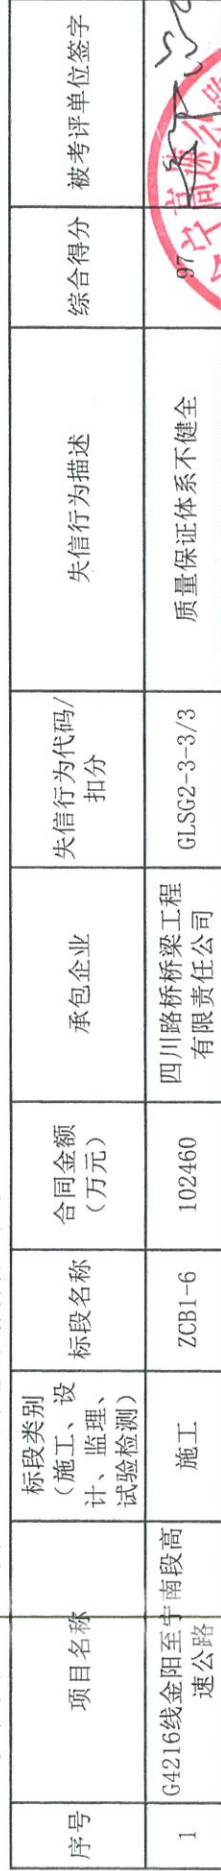 序号
项目名称
标段类别
（施工、设
计、监理、
试验检测）
标段名称
合同金额
（万元）
承包企业
失信行为代码/
扣分
失信行为描述
综合得分
被考评单位签字
1
G4216线金阳至宁南段高
速公路
施工
ZCB1-6
102460
四川路桥桥梁工程
有限责任公司
GLSG2-3-3/3
质量保证体系不健全
97
宁高速公路